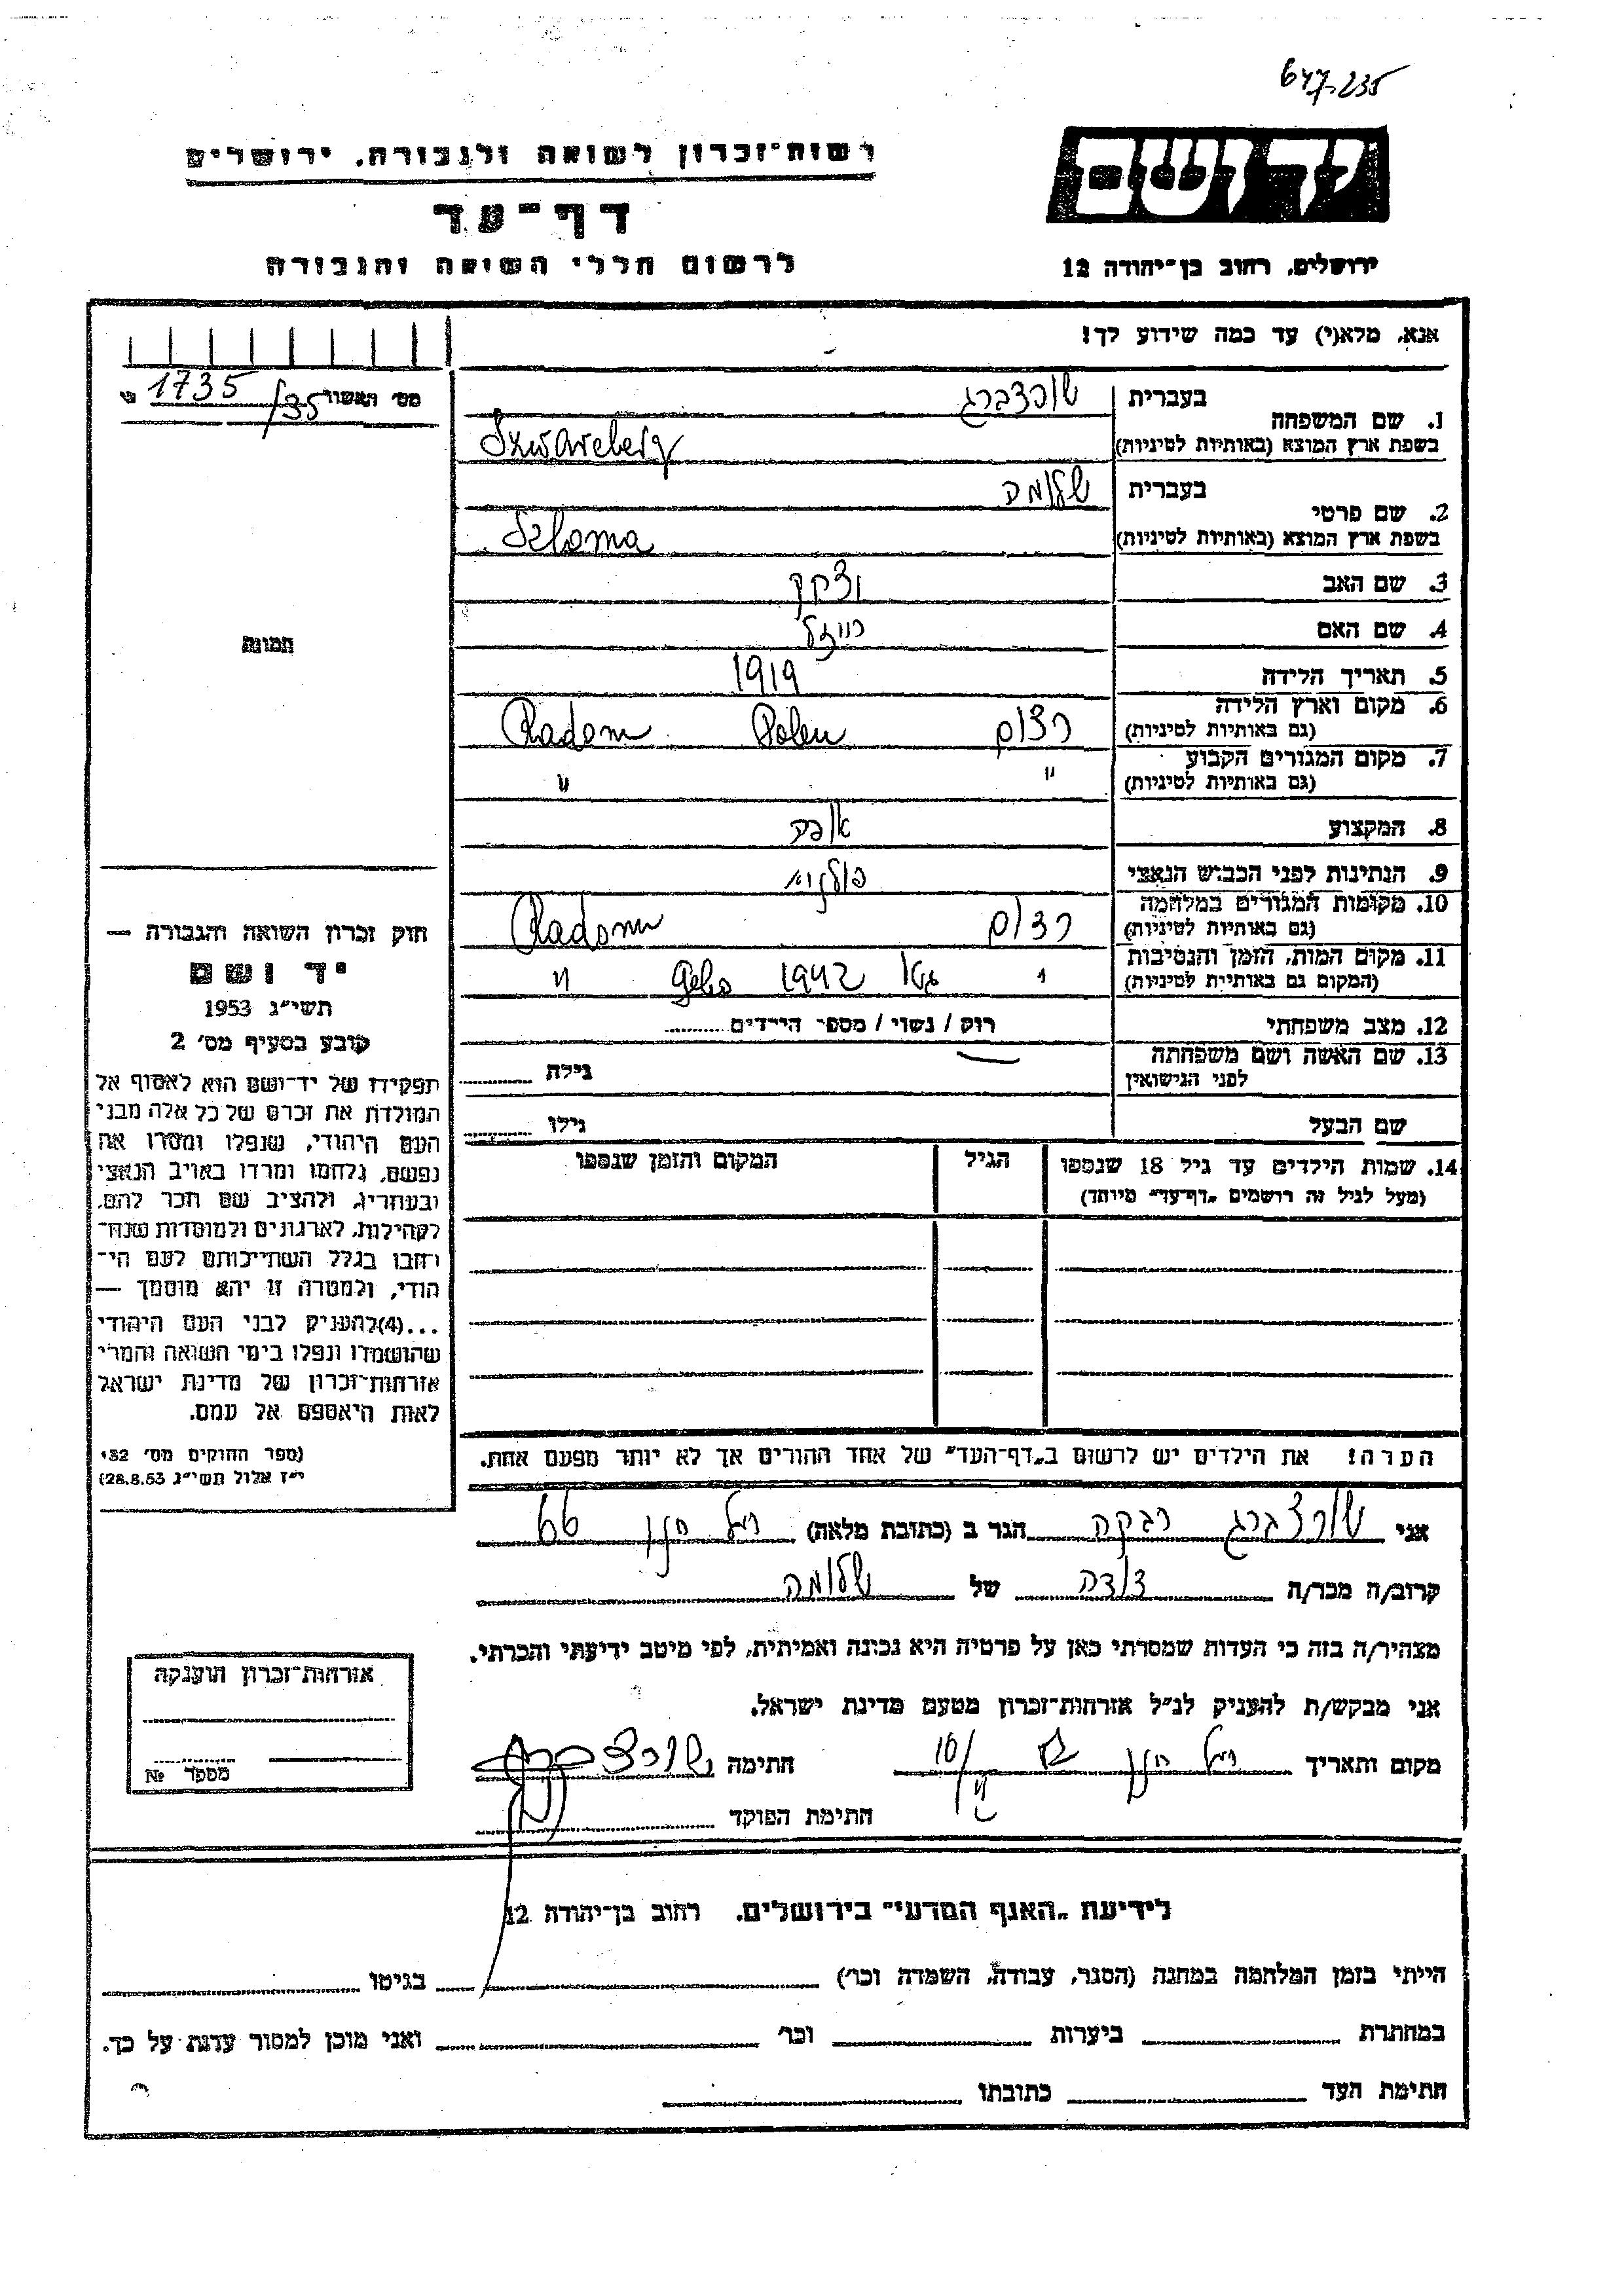 647-235
רשות-זכרון לשואה ולגבורה, ירושלים
יד ושם
דף-עד
לרשום חללי השואה והגבורה
ירושלים, רחוב בן-יהודה 12
אנא, מלא(י) עד כמה שידוע לך!
מס' האשור 1735 /35
1. שם המשפחה
בעברית שורצברג
בשפת ארץ המוצא (באותיות לטיניות) Szwarcberg
2. שם פרטי
בעברית שלומה
בשפת ארץ המוצא (באותיות לטיניות) Szloma
3. שם האב יצחק
4. שם האם
תמונה
5. תאריך הלידה 1919
6. מקום וארץ הלידה
(גם באותיות לטיניות) רדום Polen Radom
7. מקום המגורים הקבוע
(גם באותיות לטיניות) " "
8. המקצוע אופה
9. הנתינות לפני הכבוש הנאצי פולנית
10. מקומות המגורים במלחמה
(גם באותיות לטיניות) רדום Radom
11. מקום המות, הזמן והנסיבות
(המקום גם באותיות לטיניות) " גטו 1942 "
12. מצב משפחתי רווק / נשוי / מספר הילדים
13. שם האשה ושם משפחתה
לפני הנישואין
גילה
שם הבעל
גילו
14. שמות הילדים עד גיל 18 שנספו
(מעל לגיל זה רושמים „דף-עד" מיוחד)
הגיל
המקום והזמן שנספו
הערה! את הילדים יש לרשום ב„דף-העד" של אחד ההורים אך לא יותר מפעם אחת.
חוק זכרון השואה והגבורה —
יד ושם
תשי"ג 1953
קובע בסעיף מס' 2
תפקידו של יד-ושם הוא לאסוף אל
המולדת את זכרם של כל אלה מבני
העם היהודי, שנפלו ומסרו את
נפשם, נלחמו ומרדו באויב הנאצי
ובעוזריו, ולהציב שם וזכר להם,
לקהילות, לארגונים ולמוסדות שנח-
רחבו בגלל השתייכותם לעם הי-
הודי, ולמטרה זו יהא מוסמך —
...(4)להעניק לבני העם היהודי
שהושמדו ונפלו בימי השואה והמרי
אזרחות-זכרון של מדינת ישראל
לאות היאספם אל עמם.
(ספר החוקים מס' 132,
י"ז אלול תשי"ג 28.8.53)
אני שורצברג רבקה הגר ב (כתובת מלאה) 66
קרוב/ה מכר/ה דודה של שלומה
מצהיר/ה בזה כי העדות שמסרתי כאן על פרטיה היא נכונה ואמיתית, לפי מיטב ידיעתי והכרתי.
אני מבקש/ת להעניק לנ"ל אזרחות-זכרון מטעם מדינת ישראל.
מקום ותאריך 10/ חתימה
חתימת הפוקד
אזרחות-זכרון הוענקה
מספר №
לידיעת „האגף המדעי" בירושלים, רחוב בן-יהודה 12
הייתי בזמן המלחמה במחנה (הסגר, עבודה, השמדה וכו') בגיטו
במחתרת ביערות וכו' ואני מוכן למסור עדות על כך.
חתימת העד כתובתו